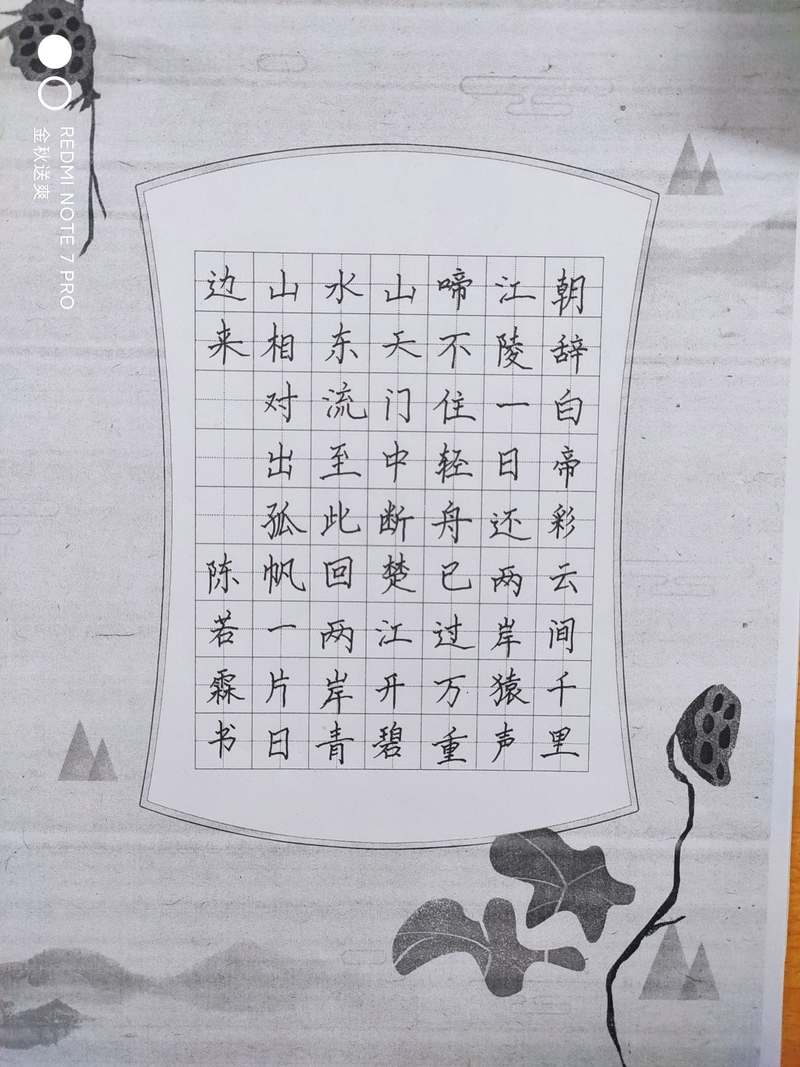 朝辞白帝彩云间千里
江陵一日还两岸猿声
啼不住轻舟已过万重
山天门中断楚江开碧
水东流至此回两岸青
山相对出孤帆一片日
边来 陈若霖书
REDMI NOTE 7 PRO
金秋送爽